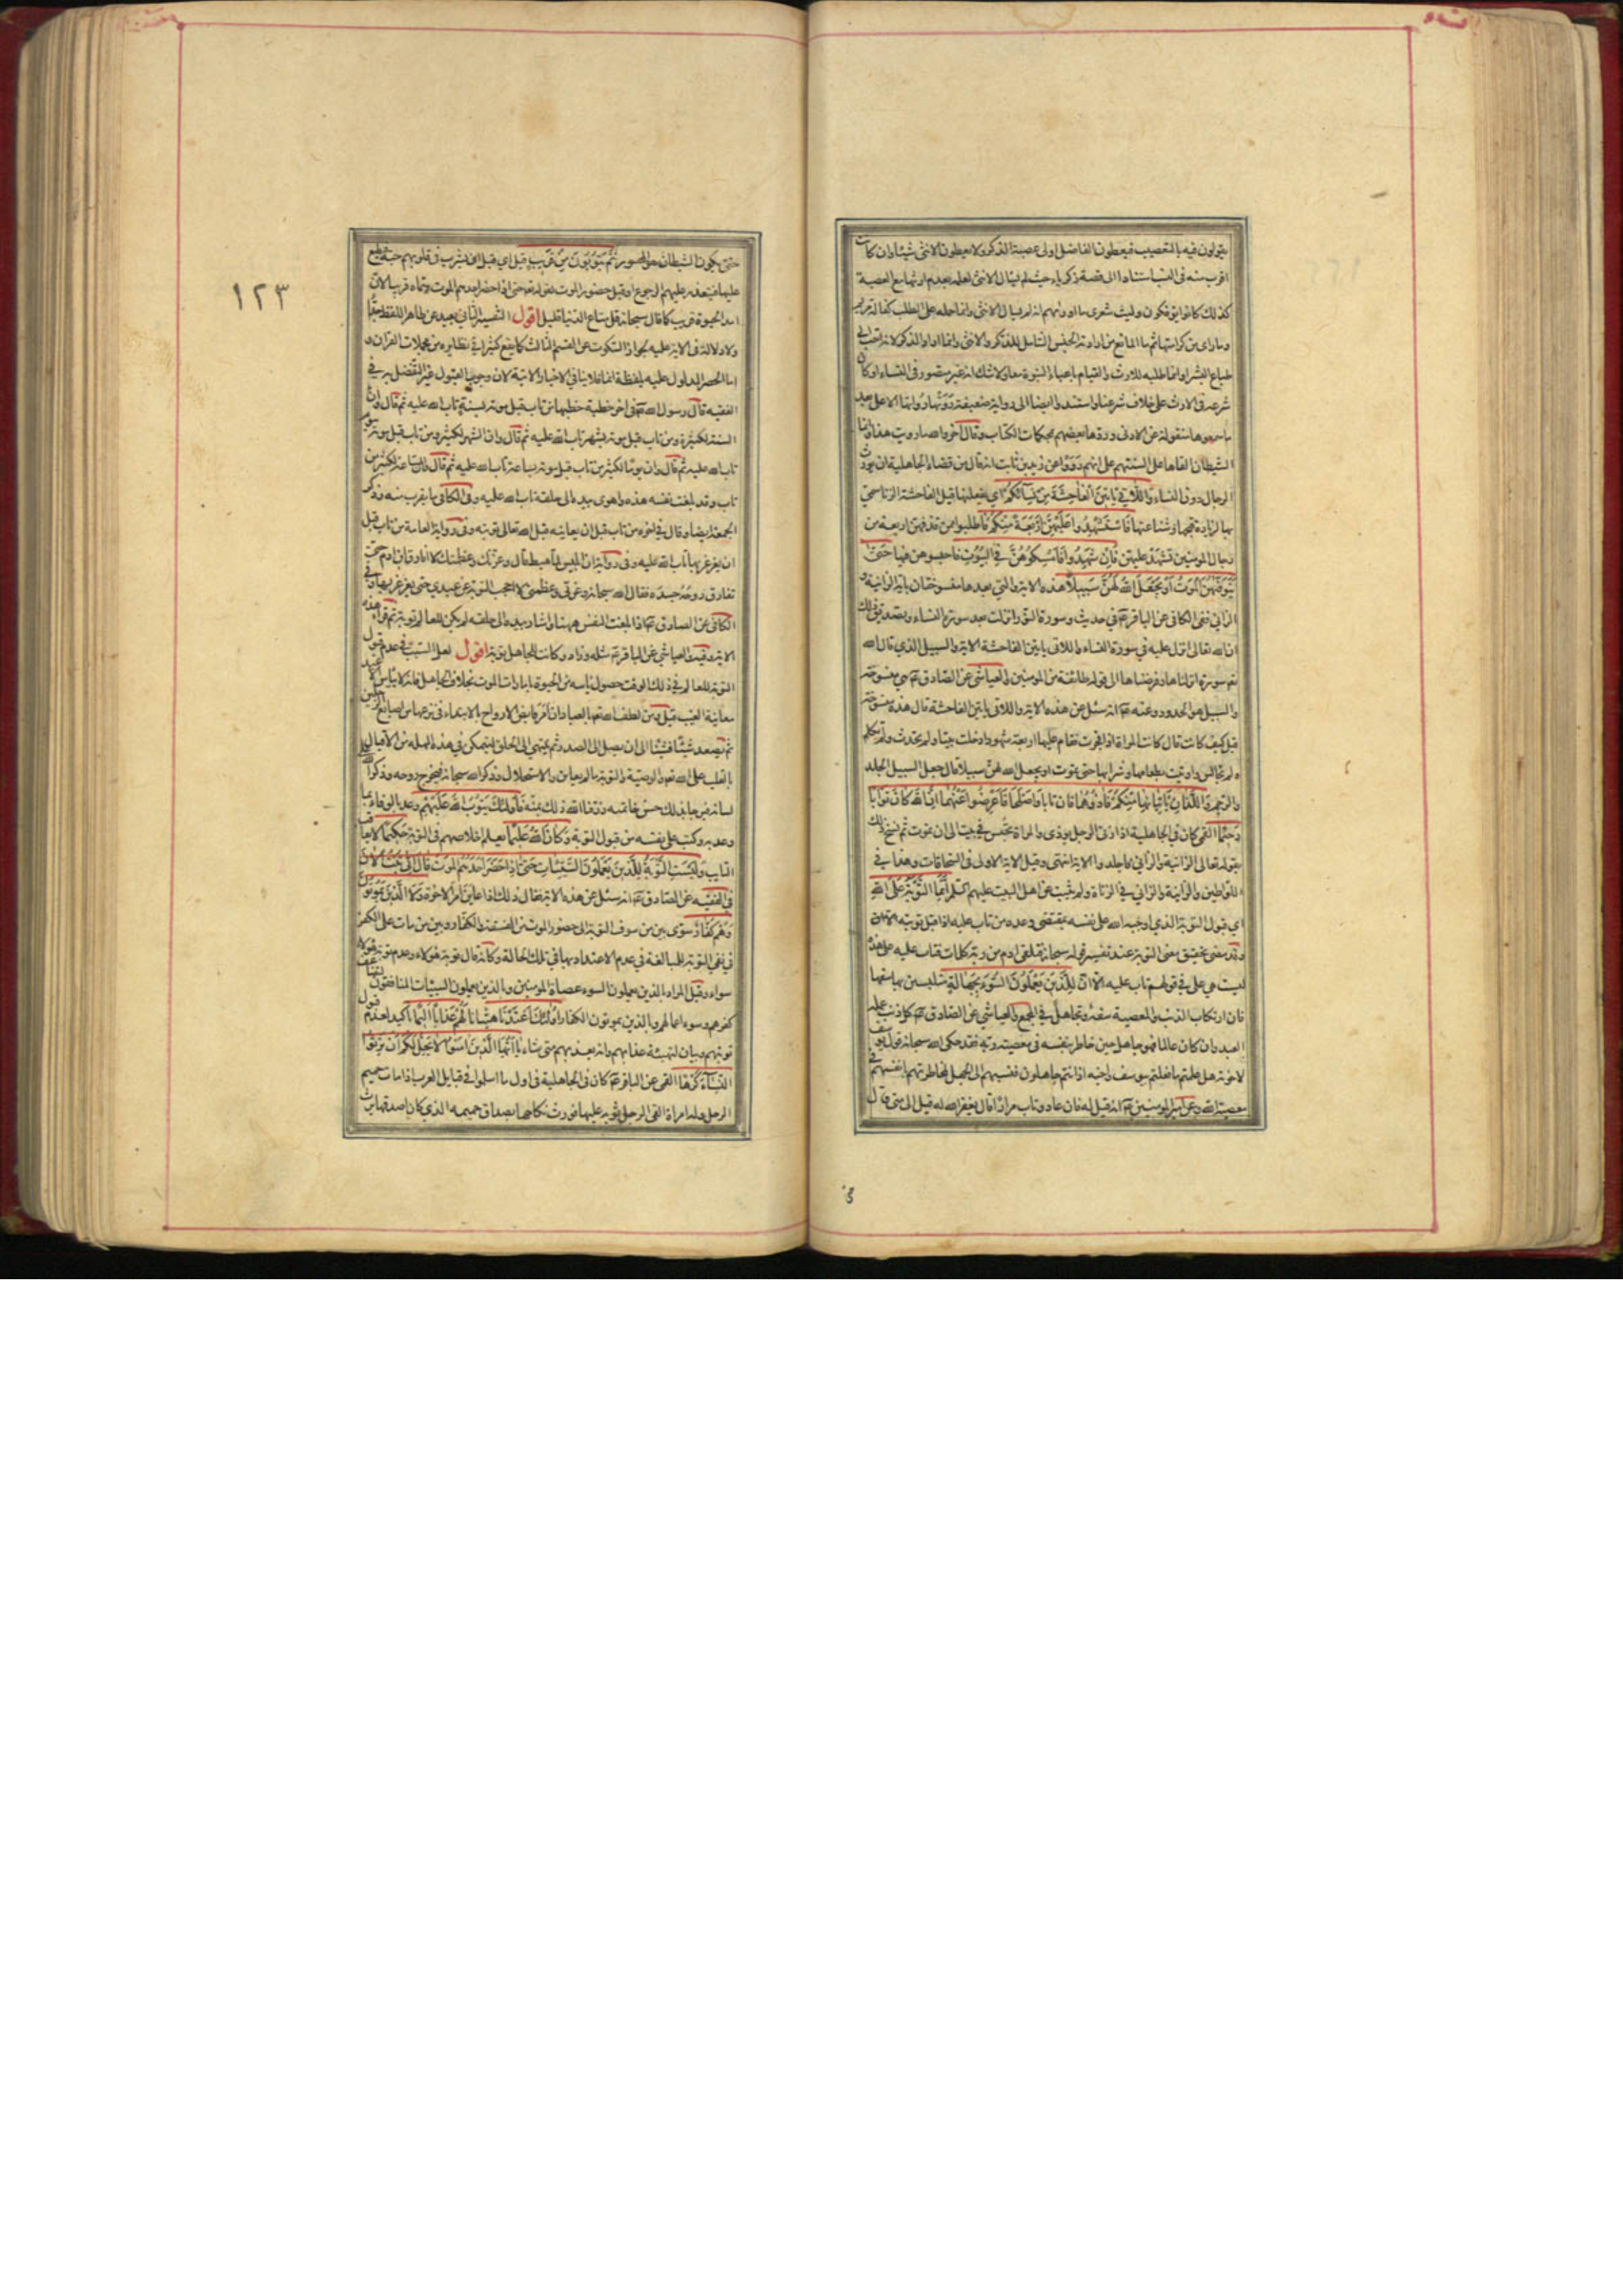 يقولون فيه بالتعصيب فيعطون الفاضل اولى عصبة الذكر ولا يعطون الانثى شيئا وان كانت
اقرب منه في النسب استنادا الى قصة زكريا حيث لم يسال الانثى لعلمه بعدم ارثها مع العصبة
كذلك كانوا يؤفكون وليت شعري ما ادريهم انه لم يسال الانثى وانما حمله على الطلب كفالة مريم
وما راى من كرامتها ثم ما المانع من ارادته الجنس الشامل للذكر والانثى وانما اراد الذكر لانه احب الى
طباع البشر او انما طلبه للارث والقيام باعباء النبوة معا ولا شك انه غير متصور في النساء او كان
شرعه في الارث على خلاف شرعنا واستندوا ايضا الى رواية ضعيفة رووها
الشيطان القاها على السنتهم على انهم رووا عن زيد بن ثابت انه قال من قضاء الجاهلية ان يورث
الرجال دون النساء واللاتي ياتين الفاحشة من نسائكم اي يفعلنها قيل الفاحشة الزنا سمي
بها لزيادة قبحها وشناعتها فاستشهدوا عليهن اربعة منكم فاطلبوا ممن قذفهن اربعة من
رجال المؤمنين تشهد عليهن فان شهدوا فامسكوهن في البيوت فاحبسوهن فيها حتى
يتوفيهن الموت او يجعل الله لهن سبيلا هذه الاية والتي بعدها منسوختان باية الزانية و
الزاني ففي الكافي عن الباقر ع في حديث وسورة النور انزلت بعد سورة النساء وتصديق ذلك
ان الله تعالى انزل عليه في سورة النساء واللاتي ياتين الفاحشة الاية والسبيل الذي قال الله
تعم سورة انزلناها وفرضناها الى قوله طائفة من المؤمنين والعياشي عن الصادق ع هي منسوخة
والسبيل هو الحدود وعنه ع انه سئل عن هذه الاية واللاتي ياتين الفاحشة قال هذه منسوخة
قيل كيف كانت قال كانت المراة اذا فجرت فقام عليها اربعة شهود ادخلت بيتا ولم تحدث ولم تكلم
ولم تجالس واوتيت بطعامها وشرابها حتى تموت او يجعل الله لهن سبيلا قال جعل السبيل الجلد
والرجم واللذان ياتيانها منكم فاذوهما فان تابا واصلحا فاعرضوا عنهما ان الله كان توابا
رحيما القمي كان في الجاهلية اذا زنى الرجل يوذى والمراة تحبس في بيت الى ان تموت ثم نسخ ذلك
بقوله تعالى الزانية والزاني فاجلدوا الاية انتهى وقيل الاية الاولى في السحاقات وهذا في
اللواطين والزانية والزاني في الزناة ولم يثبت عن اهل البيت عليهم السلم انما التوبة على الله
اي قبول التوبة الذي اوجبه الله على نفسه بمقتضى وعده من تاب عليه اذا قبل توبته الا ان
وقد مضى تحقيق معنى التوبة عند تفسير قوله سبحانه فتلقى ادم من ربه كلمات فتاب عليه على هذه
ليست هي على في قولهم تاب عليه الا ان للذين يعملون السوء بجهالة متلبسين بها سفها
فان ارتكاب الذنب والمعصية سفه وتجاهل في المجمع والعياشي عن الصادق ع كل ذنب عمله
العبد وان كان عالما فهو جاهل حين خاطر بنفسه في معصية ربه فقد حكى الله سبحانه قول يوسف
لاخوته هل علمتم ما فعلتم بيوسف واخيه اذ انتم جاهلون فنسبهم الى الجهل لمخاطرتهم بانفسهم في
معصية الله وعن امير المؤمنين ع انه قيل له فان عاد وتاب مرارا قال يغفر الله له قيل الى متى قال
١٢٣
حتى يكون الشيطان هو المحسور ثم يتوبون من قريب قيل اي قبل ان يشرب في قلوبهم حبه فيطبع
عليها فيتعذر عليهم الرجوع او قبل حضور الموت لقوله تعم حتى اذا حضر احدهم الموت وسماه قريبا لان
امد الحيوة قريب كما قال سبحانه قل متاع الدنيا قليل اقول التفسير الثاني بعيد عن ظاهر اللفظ جدا
ولا دلالة في الاية عليه لجواز السكوت عن القسم الثالث كما يقع كثيرا في نظايره من مجملات القران و
اما الحصر المدلول عليه بلفظة انما فلا ينافي الاخبار الاتية لان وجوب القبول غير التفضل به في
الفقيه قال رسول الله ص في اخر خطبة خطبها من تاب قبل موته بسنة تاب الله عليه ثم قال وان
السنة لكثيرة ومن تاب قبل موته بشهر تاب الله عليه ثم قال وان الشهر لكثير ومن تاب قبل موته بيوم
تاب الله عليه ثم قال وان يوما لكثير من تاب قبل موته بساعة تاب الله عليه ثم قال وان الساعة لكثير من
تاب وقد بلغت نفسه هذه واهوى بيده الى حلقه تاب الله عليه وفي الكافي ما يقرب منه وذكر
الجمعة ايضا وقال في اخره من تاب قبل ان يعاينه قبل الله تعالى توبته وفي رواية العامة من تاب قبل
ان يغرغر بها تاب الله عليه وفي رواية ان ابليس لما هبط قال وعزتك وعظمتك لا افارق ابن ادم حتى
تفارق روحه جسده فقال الله سبحانه وعزتي وعظمتي لا احجب التوبة عن عبدي حتى يغرغر بها وفي
الكافي عن الصادق ع اذا بلغت النفس ههنا واشار بيده الى حلقه لم يكن للعالم توبة ثم قرا هذه
الاية والعياشي عن الباقر ع مثله وزاد وكانت للجاهل توبة اقول لعل السبب في عدم قبول
التوبة للعالم في ذلك الوقت حصول ياسه من الحيوة بامارات الموت بخلاف الجاهل فانه لا يياس الا عند
معاينة الغيب قيل ومن لطف الله تعم بالعباد ان امر قابض الارواح بالابتداء في نزعها من اصابع الرجلين
ثم يصعد شيئا فشيئا الى ان يصل الى الصدر ثم ينتهي الى الحلق ليتمكن في هذه المهلة من الاقبال
بالقلب على الله تعم والوصية والتوبة ما لم يعاين والاستحلال وذكر الله سبحانه فيخرج روحه وذكر الله على
لسانه فيرجا بذلك حسن خاتمته رزقنا الله ذلك بمنه فاولئك يتوب الله عليهم وعد بالوفاء بما
وعد به وكتب على نفسه من قبول التوبة وكان الله عليما يعلم اخلاصهم في التوبة حكيما لا يعاقب
التايب وليست التوبة للذين يعملون السيئات حتى اذا حضر احدهم الموت قال اني تبت الان
في الفقيه عن الصادق ع انه سئل عن هذه الاية فقال ذلك اذا عاين امر الاخرة ولا الذين يموتون
وهم كفار سوى بين من سوف التوبة الى حضور الموت من الفسقة والكفار وبين من مات على الكفر
في نفي التوبة للمبالغة في عدم الاعتداد بها في تلك الحالة وكانه قال توبة هؤلاء وعدم توبة هؤلاء
سواء وقيل المراد بالذين يعملون السوء عصاة المؤمنين وبالذين يعملون السيئات المنافقون لتضاعف
كفرهم وسوء اعمالهم وبالذين يموتون الكفار اولئك اعتدنا هيئنا لهم عذابا اليما تاكيد لعدم قبول
توبتهم وبيان لتهيئة عذابهم وانه يعذبهم متى شاء يا ايها الذين امنوا لا يحل لكم ان ترثوا
النساء كرها القمي عن الباقر ع كان في الجاهلية في اول ما اسلموا في قبايل العرب اذا مات حميم
الرجل وله امراة القى الرجل ثوبه عليها فورث نكاحها بصداق حميمه الذي كان اصدقها يرث